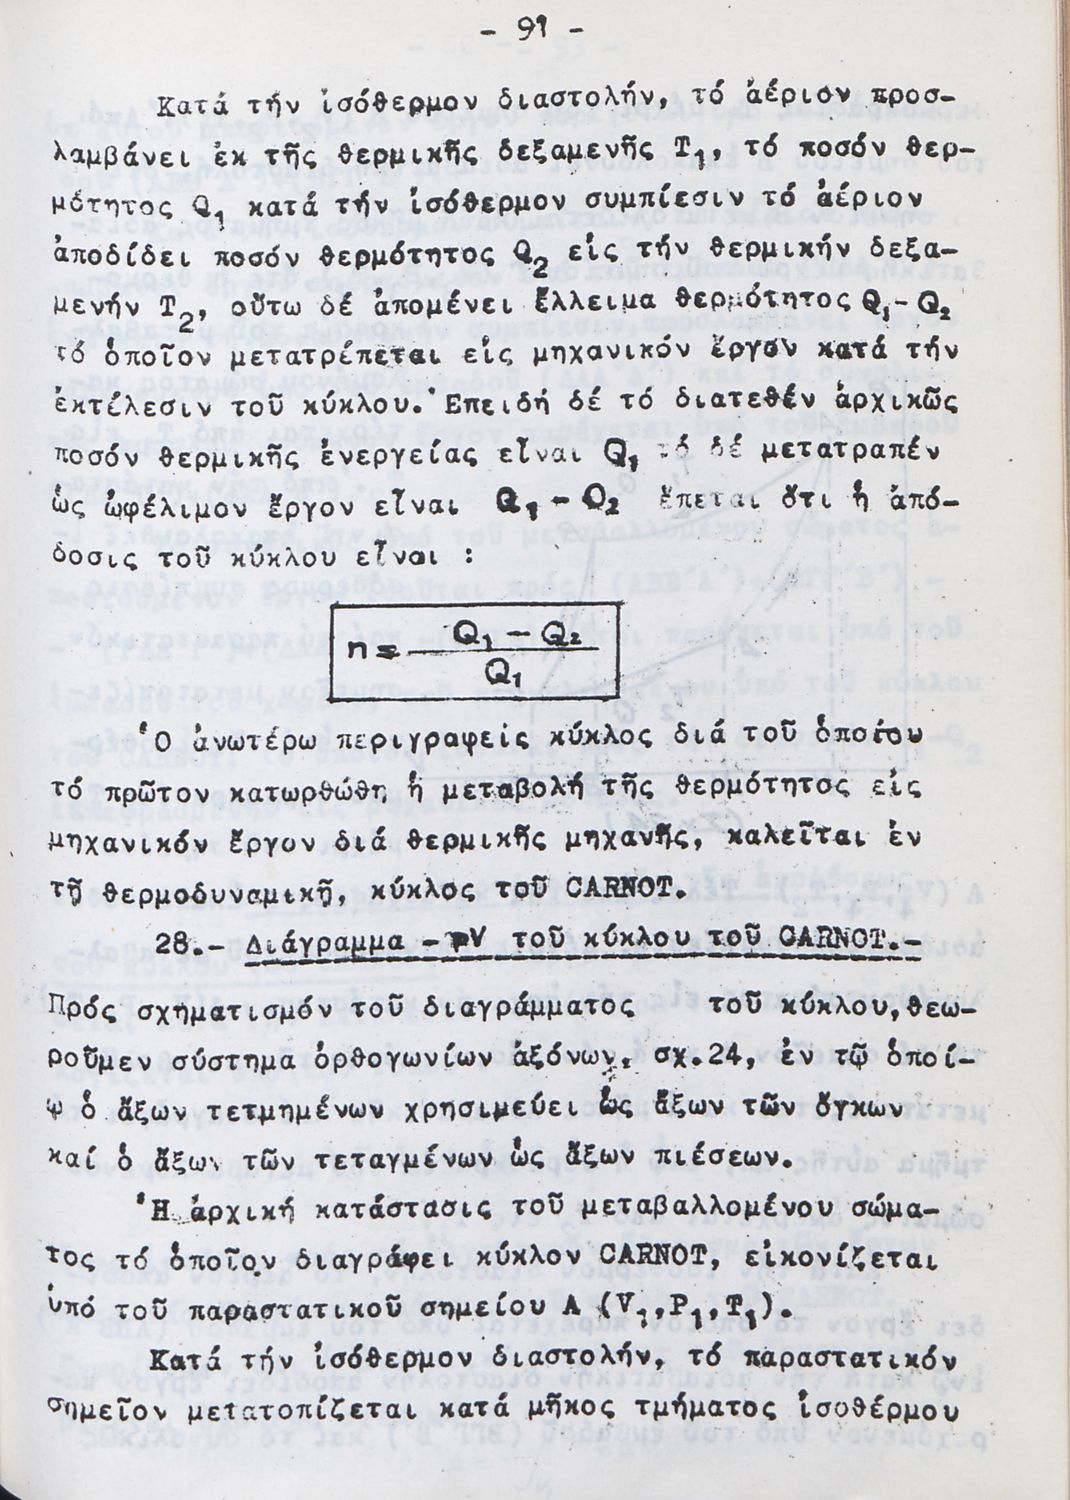 - 91 -
Κατά τήν ἰσόθερμον διαστολήν, τό ἀέριον προσ-
λαμβάνει ἐκ τῆς θερμικῆς δεξαμενῆς Τ₁, τό ποσόν θερ-
μότητος Q₁ κατά τήν ἰσόθερμον συμπίεσιν τό ἀέριον
ἀποδίδει ποσόν θερμότητος Q₂ εἰς τήν θερμικήν δεξα-
μενήν Τ₂, οὕτω δέ ἀπομένει ἔλλειμα θερμότητος Q₁ - Q₂
τό ὁποῖον μετατρέπεται εἰς μηχανικόν ἔργον κατά τήν
ἐκτέλεσιν τοῦ κύκλου. Ἐπειδή δέ τό διατεθέν ἀρχικῶς
ποσόν θερμικῆς ἐνεργείας εἶναι Q₁ τό δέ μετατραπέν
ὡς ὠφέλιμον ἔργον εἶναι Q₁ - Q₂ ἕπεται ὅτι ἡ ἀπό-
δοσις τοῦ κύκλου εἶναι :
n = Q₁ - Q₂
Q₁
Ὁ ἀνωτέρω περιγραφείς κύκλος διά τοῦ ὁποίου
τό πρῶτον κατωρθώθη ἡ μεταβολή τῆς θερμότητος εἰς
μηχανικόν ἔργον διά θερμικῆς μηχανῆς, καλεῖται ἐν
τῇ θερμοδυναμικῇ, κύκλος τοῦ CARNOT.
28.- Διάγραμμα - pV τοῦ κύκλου τοῦ CARNOT.-
Πρός σχηματισμόν τοῦ διαγράμματος τοῦ κύκλου, θεω-
ροῦμεν σύστημα ὀρθογωνίων ἀξόνων, σχ. 24, ἐν τῷ ὁποί-
ῳ ὁ ἄξων τετμημένων χρησιμεύει ὡς ἄξων τῶν ὄγκων
καί ὁ ἄξων τῶν τεταγμένων ὡς ἄξων πιέσεων.
Ἡ ἀρχική κατάστασις τοῦ μεταβαλλομένου σώμα-
τος τό ὁποῖον διαγράφει κύκλον CARNOT, εἰκονίζεται
ὑπό τοῦ παραστατικοῦ σημείου Α (V₁, P₁, T₁).
Κατά τήν ἰσόθερμον διαστολήν, τό παραστατικόν
σημεῖον μετατοπίζεται κατά μῆκος τμήματος ἰσοθέρμου